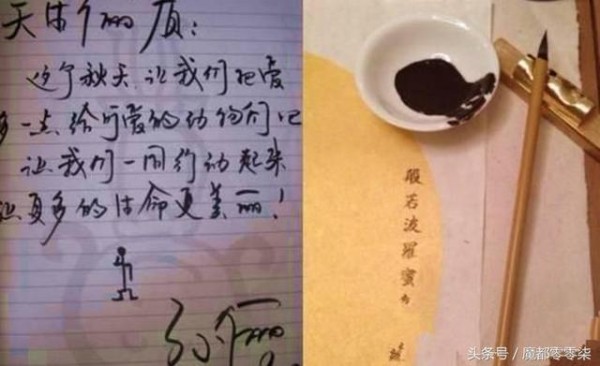 天
这个秋天,让我们把爱
一点给可爱的动物们吧
让我们一同行动起来
让更多的生命更美丽!
孙俪
般若波罗蜜
头条号/魔都零零柒